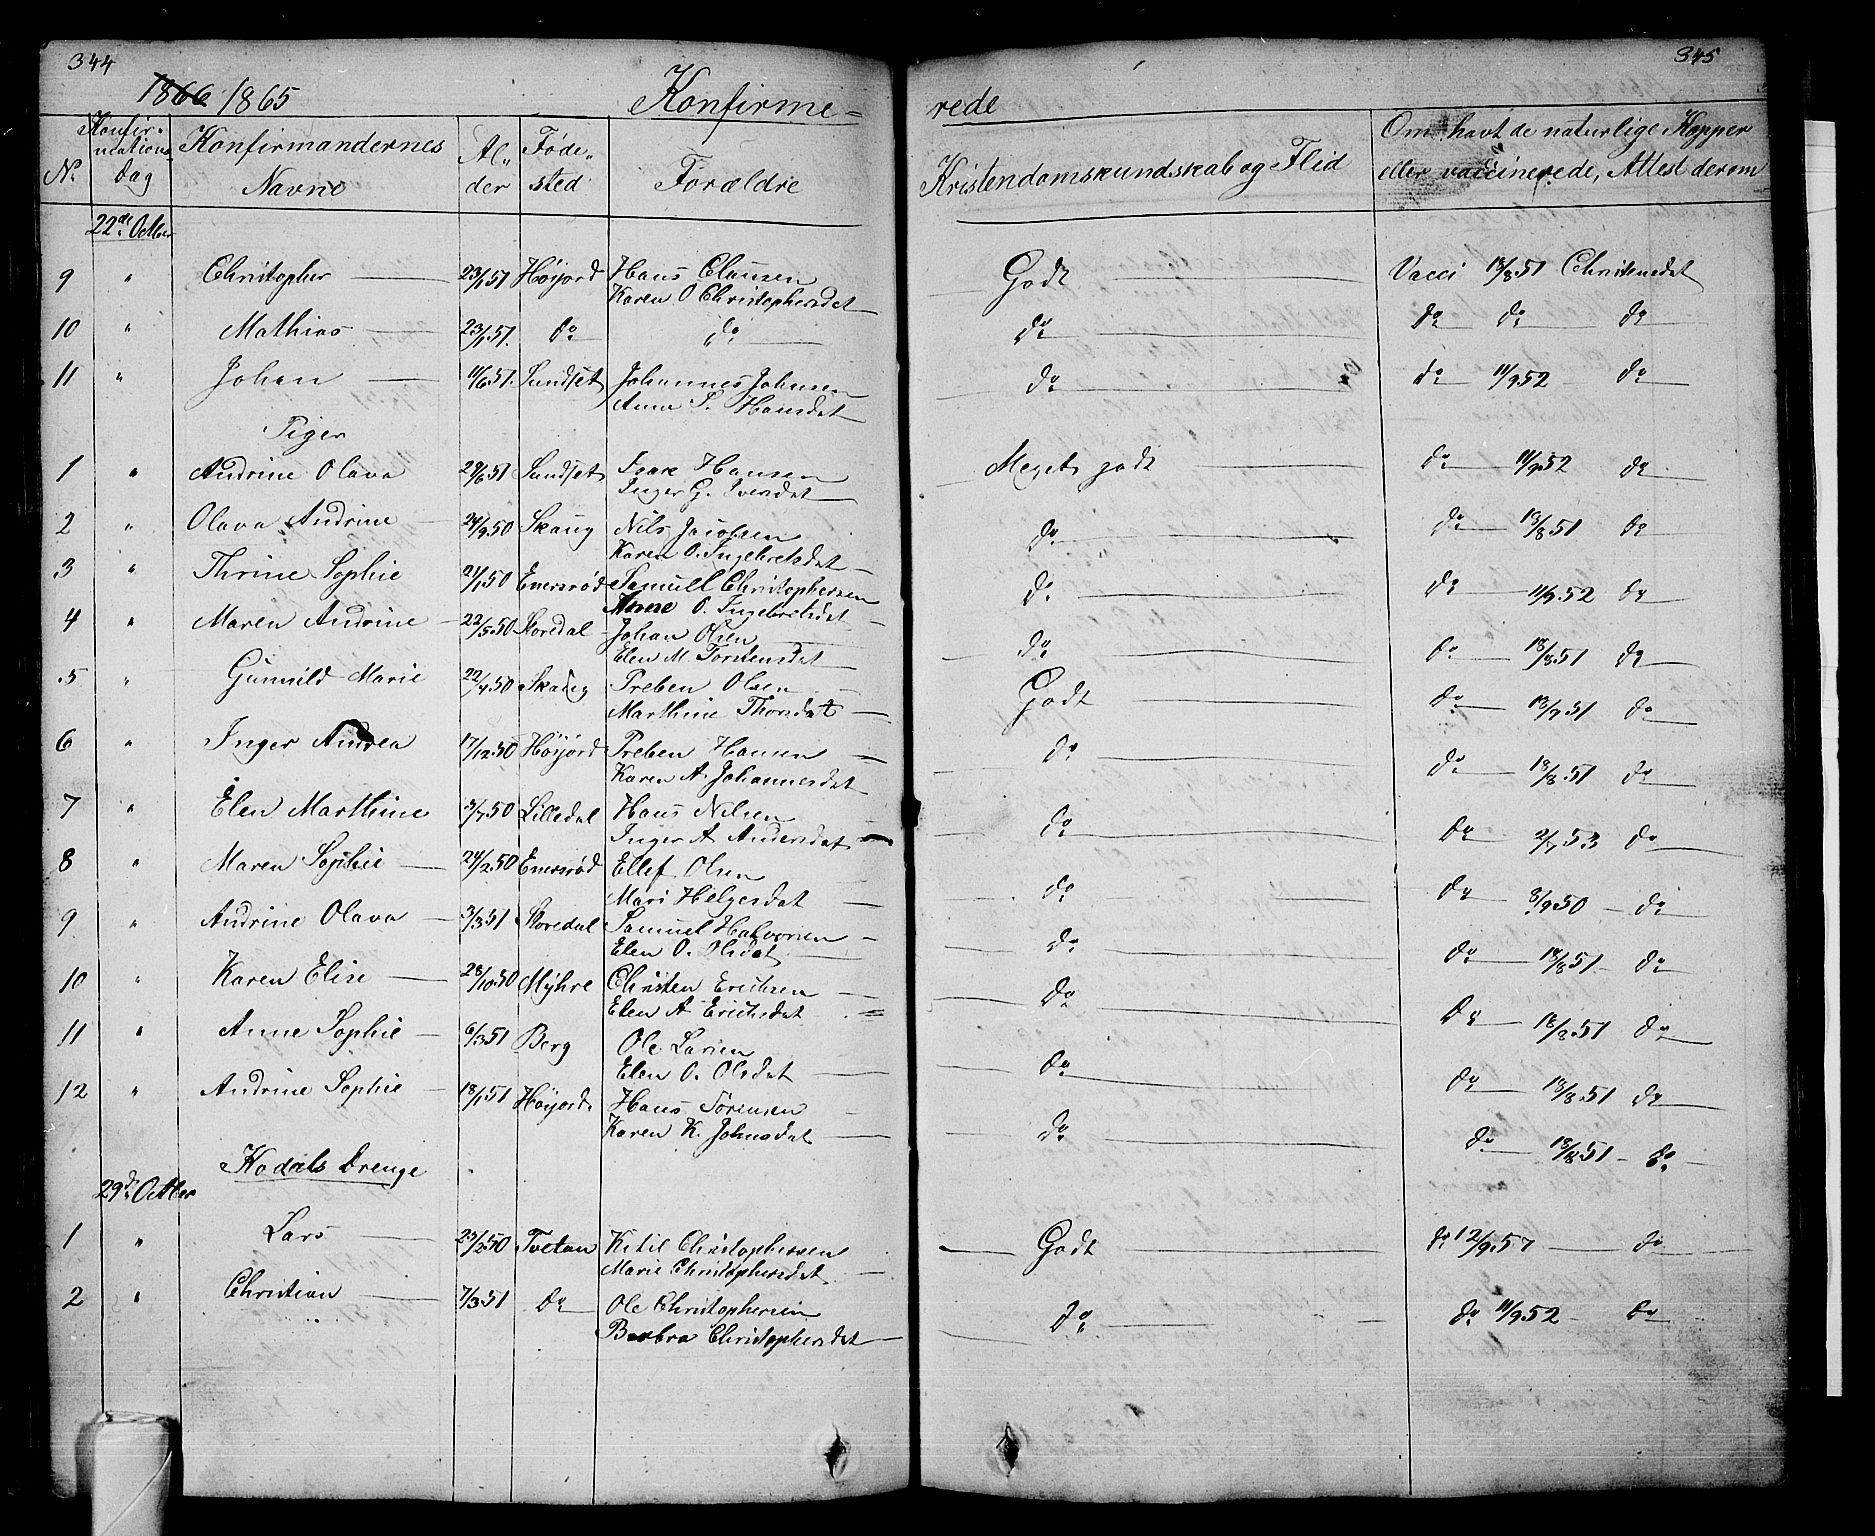 344
1866 1865 Konfirme-
Konfir-
mations
No. Dag
Konfirmandernes
Navne
Al-
der
Føde-
sted
Forældre
22de Octbr
9 " Christopher 23/1 51 Høijord Hans Clausen
Karen O Christophersdat
10 " Mathias 23/1 51. do do
11 " Johan 11/6 51. Sundset Johannes Johnsen
Anne S. Hansdat
Piger
1 " Andrine Olava 29/6 51 Sundset Isak Hansen
Inger G. Iversdat
2 " Olava Andrine 24/9 50 Skaug Nils Jacobsen
Karen O. Ingebretsdat
3 " Thrine Sophie 21/1 50 Enersrød Samuel Christophersen
Anne O. Ingebretsdat
4 " Maren Andrine 22/5 50 Storedal Johan Olsen
Elen M. Torstensdat
5 " Gunnild Marie 22/7 50 Skaug Preben Olsen
Marthine Thorsdat
6 " Inger Andrea 17/12 50 Høijord Preben Hansen
Karen A. Johannesdat
7 " Elen Marthine 3/7 50 Lilledal Hans Nilsen
Inger A. Andersdat
8 " Maren Sophie 24/2 50 Enersrød Ellef Olsen
Mari Helgesdat
9 " Andrine Olava 3/3 51 Storedal Samuel Halvorsen
Elen O. Olsdat
10 " Karen Elise 28/10 50 Myhre Christen Erichsen
Elen A Erichsdat
11 " Anne Sophie 6/3 51 Berg Ole Larsen
Elen O. Olsdat
12 " Andrine Sophie 18/1 51 Høijord Hans Sørensen
Karen K. Johnsdat
Kodals Drenge
29de Octbr
1 " Lars 23/2 50 Tvetan Ketil Christophersen
Marie Christophersdat
2 " Christian 7/3 51 do Ole Christophersen
Barbra Christophersdat
345
rede
Kristendomskundskab og Flid
Om havt de naturlige Kopper
eller vaccinerede, Attest derom
Godt Vacci 18/8 51 Christensdat
do do do do
do do 11/9 52 do
Meget godt do 11/9 52 do
do do 18/8 51 do
do do 11/9 52 do
do do 18/8 51 do
Godt do 13/9 51 do
do do 18/8 51 do
do do 2/7 53 do
do do 8/9 50 do
do do 18/8 51 do
do do 18/8 51 do
do do 18/8 51 do
do do 18/8 51 do
Godt do 12/9 57 do
do do 11/9 52 do